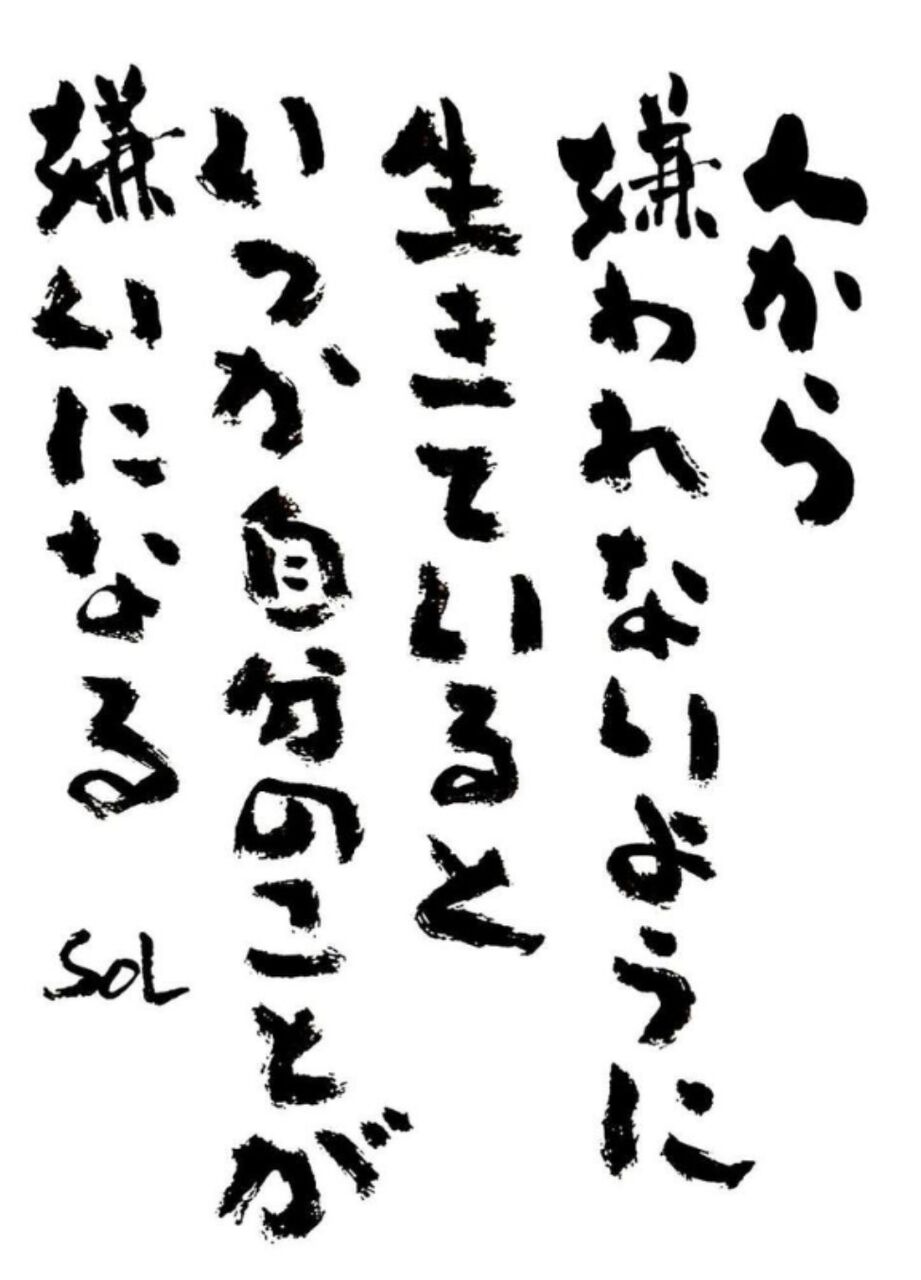 人から
嫌われないように
生きていると
いつか自分のことが
嫌いになる
SOL